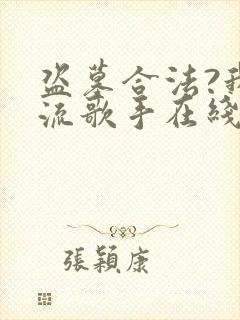 盗墓合法?我
流歌手在綫
張穎康